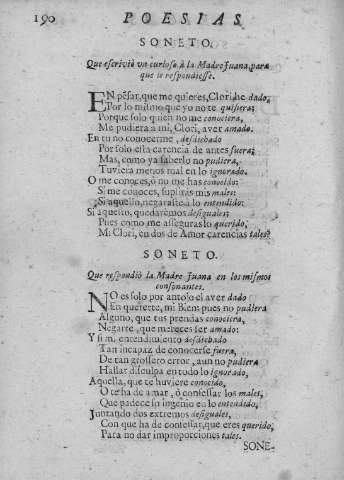 190 POESIAS.
SONETO.
Que escriviò vn curioso à la Madre Juana, para
que le respondiesse.
EN pésar, que me quieres, Clori, he dado,
Por lo mismo que yo no te quisiera;
Porque solo quien no me conociera,
Me pudiera a mi, Clori, aver amado.
En tu no conocerme, desdichado
Por solo esta carencia de antes fuera;
Mas, como yo saberlo no pudiera,
Tuviera menos mal en lo ignorado.
O me conoces, ò no me has conocido:
Si me conoces, suplirás mis males:
Si aquello, negaràste à lo entendido:
Si aquesto, quedaremos desiguales;
Pues como me asseguras lo querido,
Mi Clori, en dos de Amor carencias tales?
SONETO.
Que respondiò la Madre Juana en los mismos
consonantes.
NO es solo por antojo el aver dado
En quererte, mi Bien; pues no pudiera
Alguno, que tus prendas conociera,
Negarte, que mereces ser amado:
Y si mi entendimiento desdichado
Tan incapaz de conocerte fuera,
De tan grossero error, aun no pudiera
Hallar disculpa en todo lo ignorado,
Aquella, que te huviere conocido,
O te ha de amar, ò confessar los males,
Que padece su ingenio en lo entendido,
Juntando dos extremos desiguales,
Con que ha de confessar, que eres querido,
Para no dar improporciones tales.
SONE-